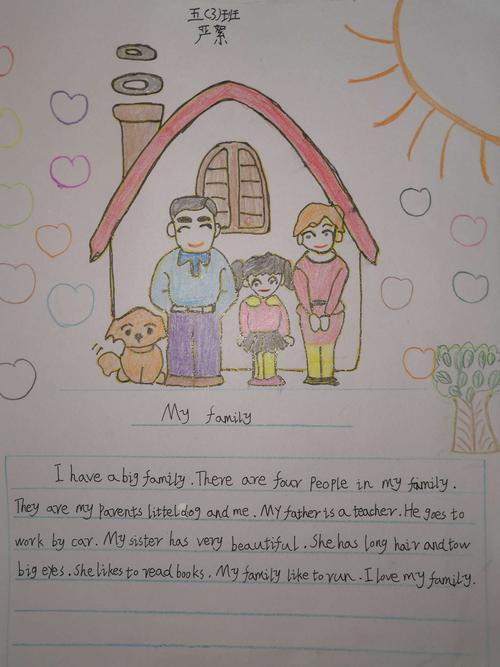 五(3)班
严絮
My family
I have a big family. There are four people in my family.
They are my parents littel dog and me. My father is a teacher. He goes to
work by car. My sister has very beautiful. She has long hair and tow
big eyes. She likes to read books. My family like to run. I love my family.